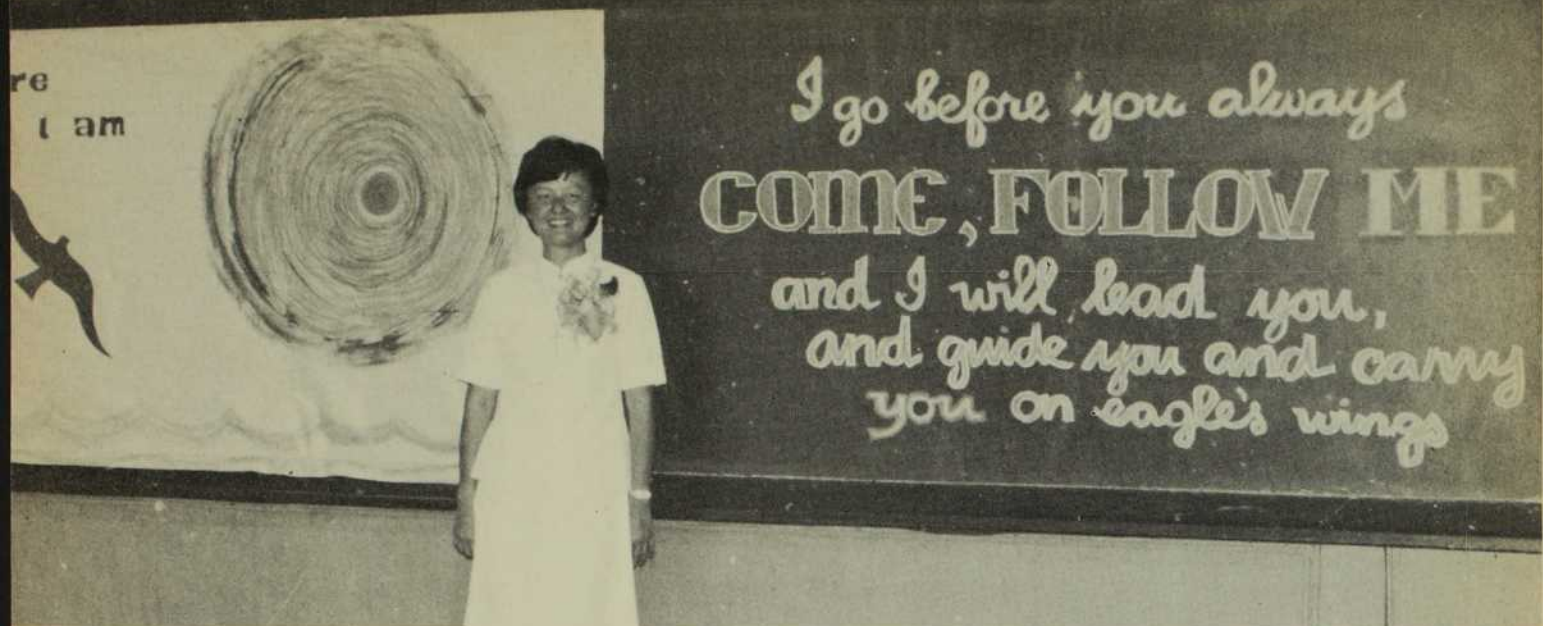 re
i am
I go before you always
COME, FOLLOW ME
and I will lead you,
and guide you and carry
you on eagle's wings